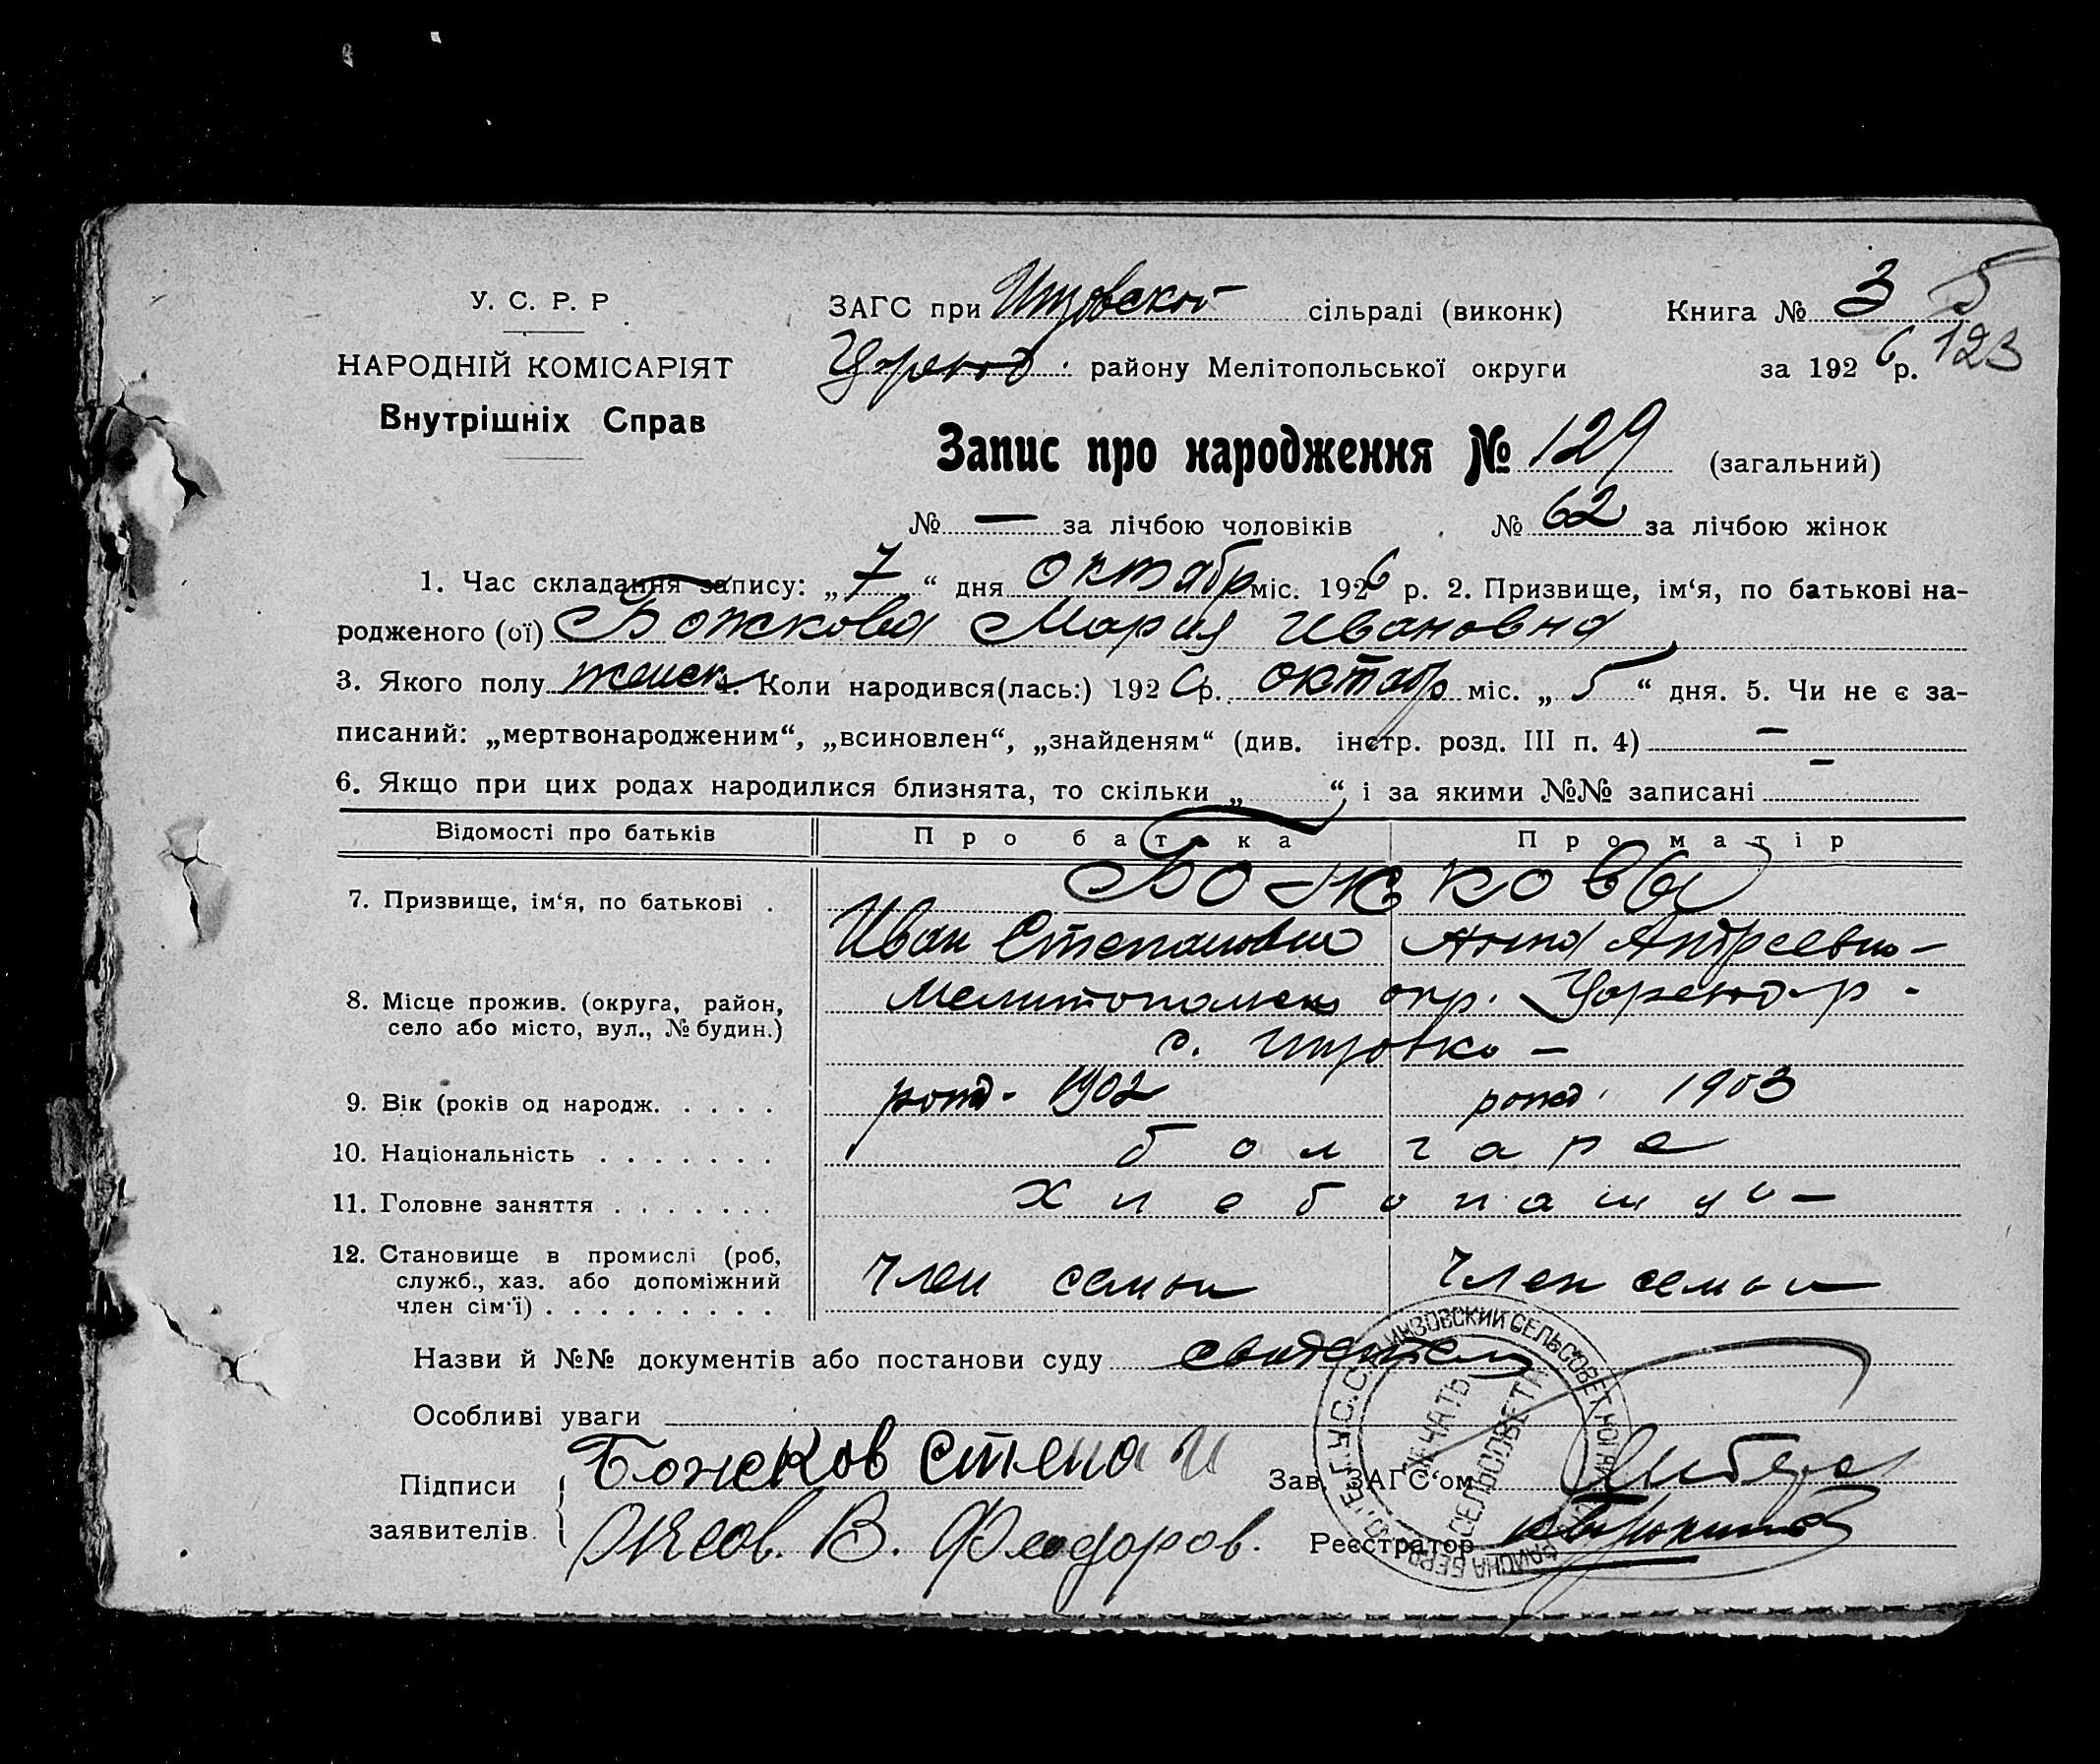 У. С. Р. Р
ЗАГС при Инзовской сільраді (виконк) Книга № 3 5
НАРОДНІЙ КОМІСАРІЯТ
Цареков. району Мелітопольської округи за 1926 р. 123
Внутрішніх Справ
Запис про народження № 129 (загальний)
№ — за лічбою чоловіків . № 62 за лічбою жінок
1. Час складання запису: „7“ дня октябр міс. 1926 р. 2. Призвище, ім‘я, по батькові на-
родженого (ої) Божкова Мария Ивановна
3. Якого полу женск 4. Коли народився(лась:) 1926 р. октабр міс. „5“ дня. 5. Чи не є за-
писаний: „мертвонародженим“, „всиновлен“, „знайденям“ (див. інстр. розд. III п. 4) —
6. Якщо при цих родах народилися близнята, то скільки „ “, і за якими №№ записані —
Відомості про батьків Про батька Про матір
7. Призвище, ім‘я, по батькові . Божковы
Иван Степанович Анна Андреевна —
8. Місце прожив. (округа, район, село або місто, вул., № будин.) Мелитопольск окр. р -
с. Инзовка —
9. Вік (років од народж. . . . . рожд. 1902 рожд. 1903
10. Національність . . . . . . . болгаре
11. Головне заняття . . . . . . . хлебопашцы —
12. Становище в промислі (роб, служб., хаз. або допоміжний член сім‘ї) . . . . . . . . . . Член семьи Член семьи
Назви й №№ документів або постанови суду свидетели
Особливі уваги
Підписи заявителів Божков Степан
В. Феодоров.
Зав. ЗАГС‘ом
Реєстратор
ИНЗОВСКИЙ СЕЛЬСОВЕТ
ПЕЧАТЬ
СЕЛЬСОВЕТА